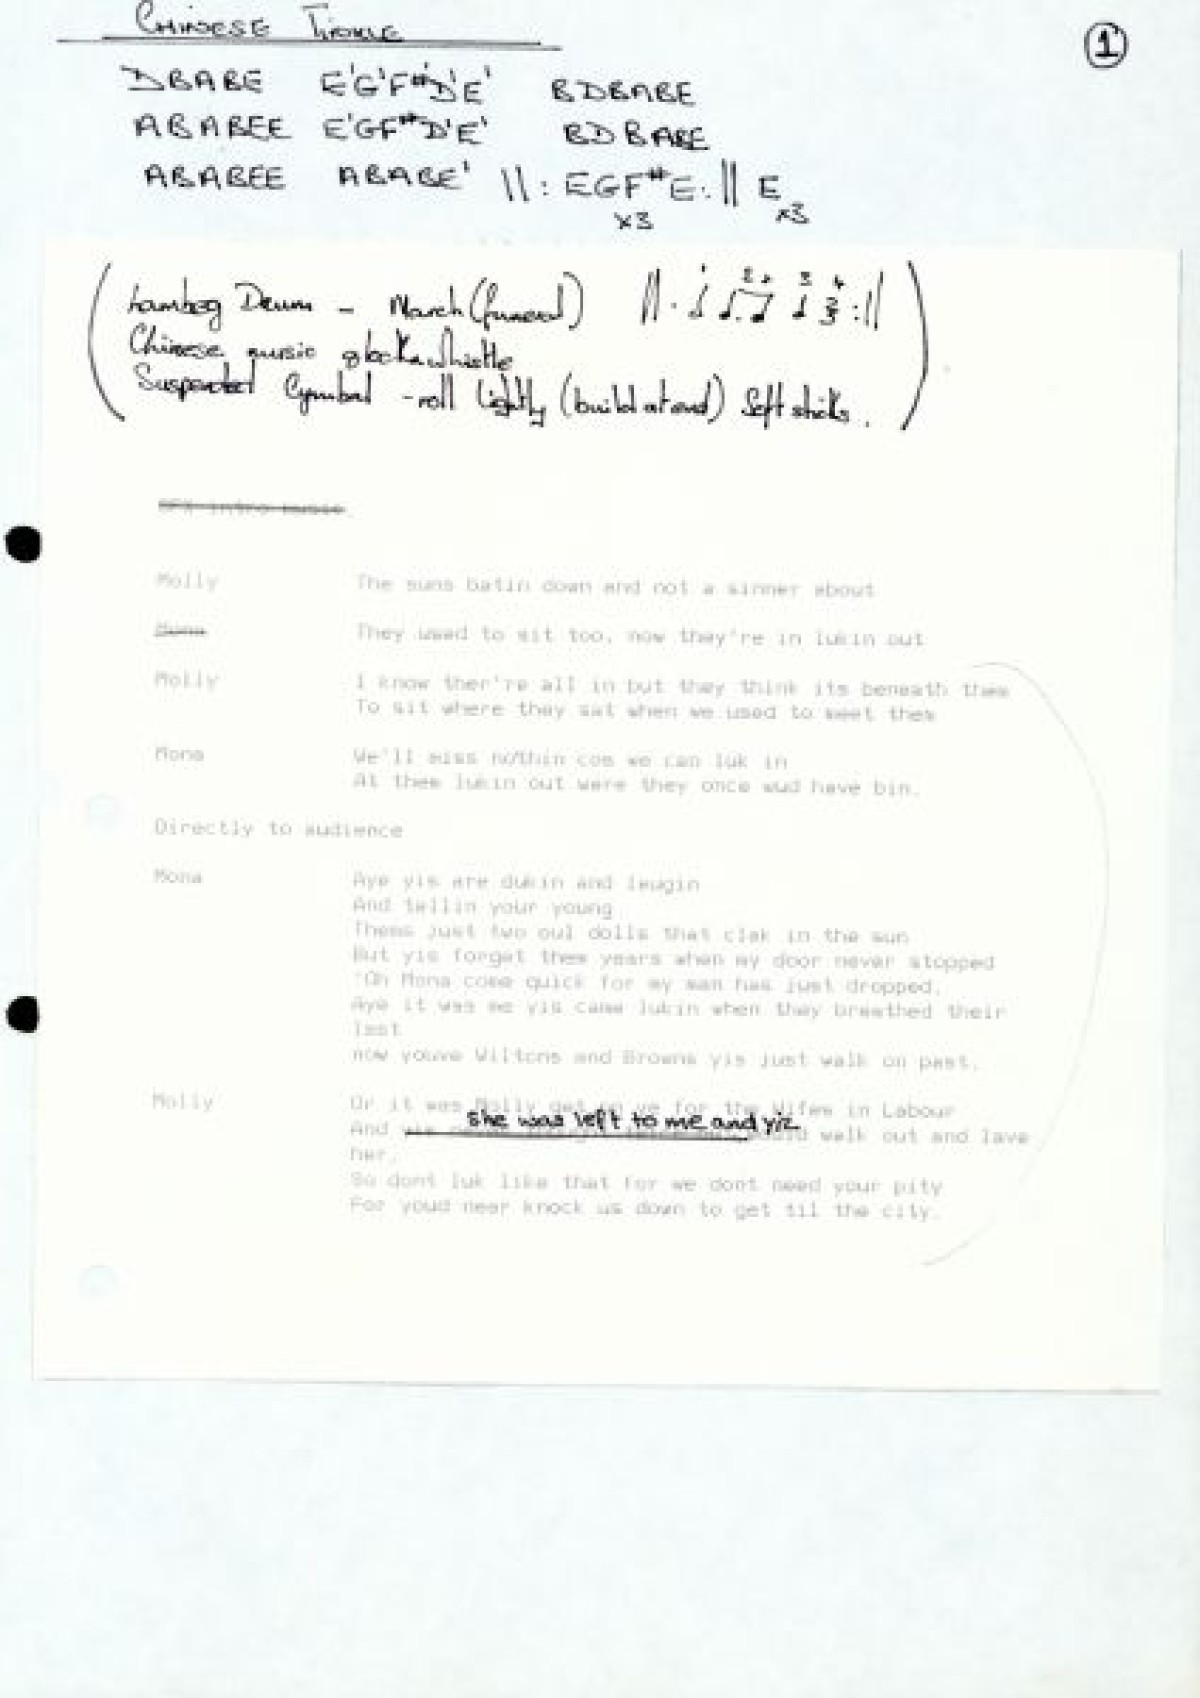 CHINESE
①
DBABE E'G'F#'D'E' BDBABE
ABABEE E'GF#D'E' BDBABE
ABABEE ABABE' ||: EGF#E :|| E
x3 x3
Lambeg Drum - March (funeral)
1 2 + 3 4
Chinese music glock & whistle
Suspended Cymbal - roll lightly (build at end) Soft sticks.
SFX intro music
Molly The suns batin down and not a sinner about
Mona They used to sit too, now they're in lukin out
Molly I know ther're all in but they think its beneath them
To sit where they sat when we used to meet them
Mona We'll miss nothin cos we can luk in
At them lukin out were they once wud have bin.
Directly to audience
Mona Aye yis are dukin and leugin
And tellin your young
Thems just two oul dolls that clak in the sun
But yis forget them years when my door never stopped
'Oh Mona come quick for my man has just dropped.
Aye it was me yis came lukin when they breathed their
last
now youve Wiltons and Browns yis just walk on past.
Molly Or it was Molly get on ye for the Wifes in Labour
she was left to me and yiz
And would walk out and lave
her.
So dont luk like that for we dont need your pity
For youd near knock us down to get til the city.